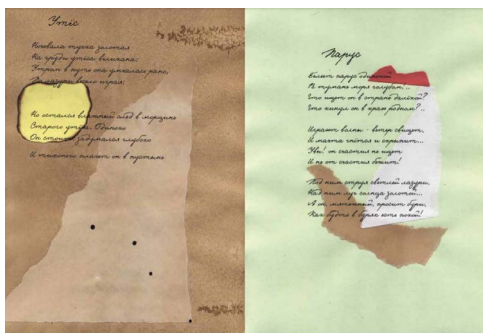 Утёс
Ночевала тучка золотая
На груди утёса великана;
Утром в путь она умчалась рано,
По лазури весело играя;
Но остался влажный след в морщине
Старого утёса. Одиноко
Он стоит, задумался глубоко
И тихонько плачет он в пустыне
Парус
Белеет парус одинокой
В тумане моря голубом!..
Что ищет он в стране далёкой?
Что кинул он в краю родном?..
Играют волны - ветер свищет,
И мачта гнётся и скрыпит...
Увы! он счастия не ищет
И не от счастия бежит!
Под ним струя светлей лазури,
Над ним луч солнца золотой...
А он, мятежный, просит бури,
Как будто в бурях есть покой!